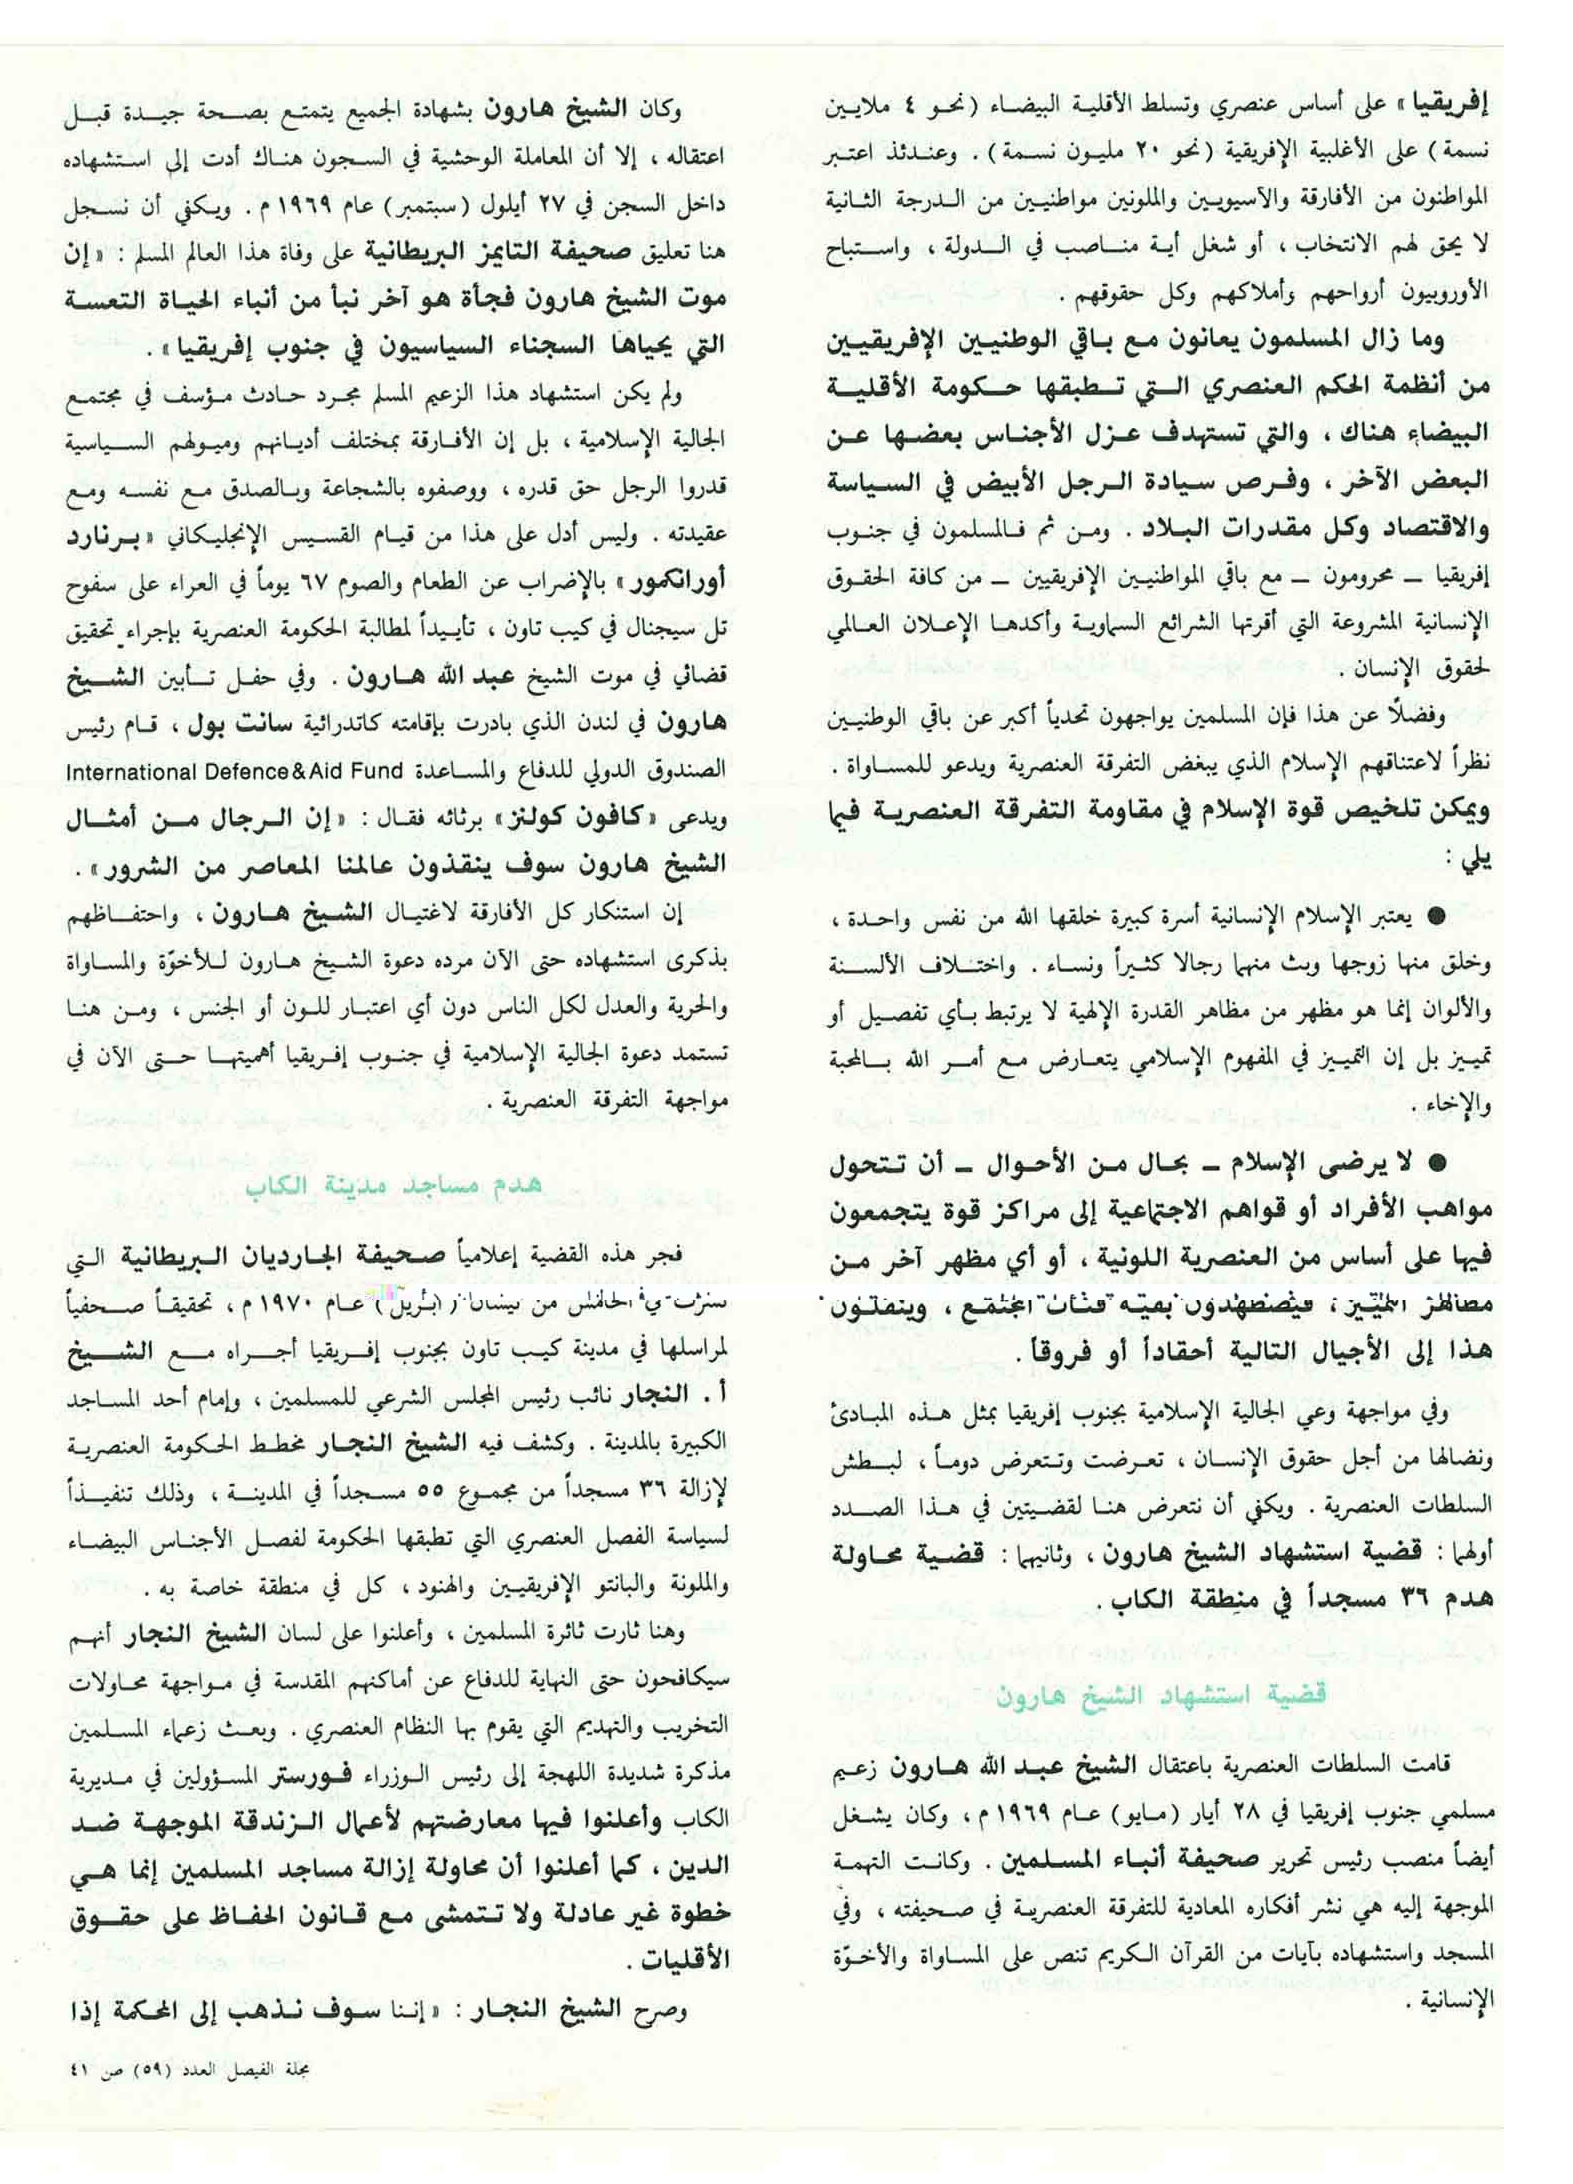 إفريقيا» على أساس عنصري وتسلط الأقلية البيضاء (نحو ٤ ملايين
نسمة) على الأغلبية الإفريقية (نحو ٢٠ مليون نسمة). وعندئذ اعتبر
المواطنون من الأفارقة والآسيويين والملونين مواطنين من الدرجة الثانية
لا يحق لهم الانتخاب، أو شغل أية مناصب في الدولة، واستباح
الأوروبيون أرواحهم وأملاكهم وكل حقوقهم.
وما زال المسلمون يعانون مع باقي الوطنيين الإفريقيين
من أنظمة الحكم العنصري التي تطبقها حكومة الأقلية
البيضاء هناك، والتي تستهدف عزل الأجناس بعضها عن
البعض الآخر، وفرص سيادة الرجل الأبيض في السياسة
والاقتصاد وكل مقدرات البلاد. ومن ثم فالمسلمون في جنوب
إفريقيا – محرومون – مع باقي المواطنين الإفريقيين – من كافة الحقوق
الإنسانية المشروعة التي أقرتها الشرائع السماوية وأكدها الإعلان العالمي
لحقوق الإنسان.
وفضلاً عن هذا فإن المسلمين يواجهون تحدياً أكبر عن باقي الوطنيين
نظراً لاعتناقهم الإسلام الذي يبغض التفرقة العنصرية ويدعو للمساواة.
ويمكن تلخيص قوة الإسلام في مقاومة التفرقة العنصرية فيما
يلي:
● يعتبر الإسلام الإنسانية أسرة كبيرة خلقها الله من نفس واحدة،
وخلق منها زوجها وبث منهما رجالا كثيراً ونساء. واختلاف الألسنة
والألوان إنما هو مظهر من مظاهر القدرة الإلهية لا يرتبط بأي تفصيل أو
تمييز بل إن التمييز في المفهوم الإسلامي يتعارض مع أمر الله بالمحبة
والإخاء.
● لا يرضى الإسلام – بحال من الأحوال – أن تتحول
مواهب الأفراد أو قواهم الاجتماعية إلى مراكز قوة يتجمعون
فيها على أساس من العنصرية اللونية، أو أي مظهر آخر من
مظاهر التمييز، فيضطهدون بقية فئات المجتمع، وينقلون
هذا إلى الأجيال التالية أحقاداً أو فروقاً.
وفي مواجهة وعي الجالية الإسلامية بجنوب إفريقيا بمثل هذه المبادئ
ونضالها من أجل حقوق الإنسان، تعرضت وتتعرض دوماً، لبطش
السلطات العنصرية. ويكفي أن نتعرض هنا لقضيتين في هذا الصدد
أولهما: قضية استشهاد الشيخ هارون، وثانيهما: قضية محاولة
هدم ٣٦ مسجداً في منطقة الكاب.
قضية استشهاد الشيخ هارون
قامت السلطات العنصرية باعتقال الشيخ عبد الله هارون زعيم
مسلمي جنوب إفريقيا في ٢٨ أيار (مايو) عام ١٩٦٩ م، وكان يشغل
أيضاً منصب رئيس تحرير صحيفة أنباء المسلمين. وكانت التهمة
الموجهة إليه هي نشر أفكاره المعادية للتفرقة العنصرية في صحيفته، وفي
المسجد واستشهاده بآيات من القرآن الكريم تنص على المساواة والأخوّة
الإنسانية.
وكان الشيخ هارون بشهادة الجميع يتمتع بصحة جيدة قبل
اعتقاله، إلا أن المعاملة الوحشية في السجون هناك أدت إلى استشهاده
داخل السجن في ٢٧ أيلول (سبتمبر) عام ١٩٦٩ م. ويكفي أن نسجل
هنا تعليق صحيفة التايمز البريطانية على وفاة هذا العالم المسلم: «إن
موت الشيخ هارون فجأة هو آخر نبأ من أنباء الحياة التعسة
التي يحياها السجناء السياسيون في جنوب إفريقيا».
ولم يكن استشهاد هذا الزعيم المسلم مجرد حادث مؤسف في مجتمع
الجالية الإسلامية، بل إن الأفارقة بمختلف أديانهم وميولهم السياسية
قدروا الرجل حق قدره، ووصفوه بالشجاعة وبالصدق مع نفسه ومع
عقيدته. وليس أدل على هذا من قيام القسيس الإنجليكاني «برنارد
أورانكمور» بالإضراب عن الطعام والصوم ٦٧ يوماً في العراء على سفوح
تل سيجنال في كيب تاون، تأييداً لمطالبة الحكومة العنصرية بإجراء تحقيق
قضائي في موت الشيخ عبد الله هارون. وفي حفل تأبين الشيخ
هارون في لندن الذي بادرت بإقامته كاتدرائية سانت بول، قام رئيس
الصندوق الدولي للدفاع والمساعدة International Defence&Aid Fund
ويدعى «كافون كولنز» برثائه فقال: «إن الرجال من أمثال
الشيخ هارون سوف ينقذون عالمنا المعاصر من الشرور».
إن استنكار كل الأفارقة لاغتيال الشيخ هارون، واحتفاظهم
بذكرى استشهاده حتى الآن مرده دعوة الشيخ هارون للأخوّة والمساواة
والحرية والعدل لكل الناس دون أي اعتبار للون أو الجنس، ومن هنا
تستمد دعوة الجالية الإسلامية في جنوب إفريقيا أهميتها حتى الآن في
مواجهة التفرقة العنصرية.
هدم مساجد مدينة الكاب
فجر هذه القضية إعلامياً صحيفة الجارديان البريطانية التي
نشرت في الخامس من نيسان (أبريل) عام ١٩٧٠ م، تحقيقاً صحفياً
لمراسلها في مدينة كيب تاون بجنوب إفريقيا أجراه مع الشيخ
أ. النجار نائب رئيس المجلس الشرعي للمسلمين، وإمام أحد المساجد
الكبيرة بالمدينة. وكشف فيه الشيخ النجار مخطط الحكومة العنصرية
لإزالة ٣٦ مسجداً من مجموع ٥٥ مسجداً في المدينة، وذلك تنفيذاً
لسياسة الفصل العنصري التي تطبقها الحكومة لفصل الأجناس البيضاء
والملونة والبانتو الإفريقيين والهنود، كل في منطقة خاصة به.
وهنا ثارت ثائرة المسلمين، وأعلنوا على لسان الشيخ النجار أنهم
سيكافحون حتى النهاية للدفاع عن أماكنهم المقدسة في مواجهة محاولات
التخريب والتهديم التي يقوم بها النظام العنصري. وبعث زعماء المسلمين
مذكرة شديدة اللهجة إلى رئيس الوزراء فورستر المسؤولين في مديرية
الكاب وأعلنوا فيها معارضتهم لأعمال الزندقة الموجهة ضد
الدين، كما أعلنوا أن محاولة إزالة مساجد المسلمين إنما هي
خطوة غير عادلة ولا تتمشى مع قانون الحفاظ على حقوق
الأقليات.
وصرح الشيخ النجار: «إننا سوف نذهب إلى المحكمة إذا
مجلة الفيصل العدد (٥٩) ص ٤١